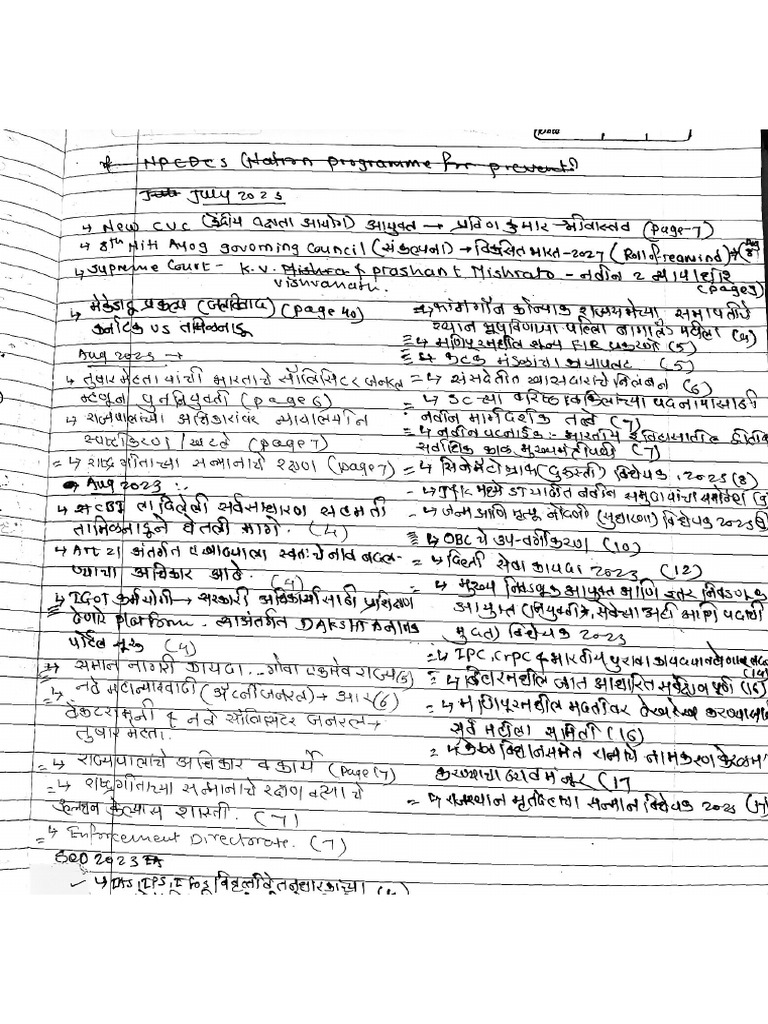 Date
* NPCDCS (Nation programme for prevent
July 2023
↳ New CVC (केंद्रीय दक्षता आयोग) आयुक्त → प्रविण कुमार श्रीवास्तव (page-7)
↳ 8th Niti Ayog governing Council (संकल्पना) → विकसित भारत-2027
↳ Supreme Court - K.V. Mishra & Prashant Mishra - नवीन 2 न्यायाधीश
Vishvanath. (page 9)
↳ मेकेदाटू प्रकल्प (जलविवाद) (page 40)
कर्नाटक vs तमिळनाडू
Aug 2023 →
↳ तुषार मेहता यांची भारताचे सॉलिसिटर जनरल
म्हणून पुनर्नियुक्ती (page 6)
↳ राज्यपालांच्या अधिकारांवर न्यायालयीन
स्पष्टीकरण / खटले (page 7)
= ↳ राष्ट्रगीताच्या सन्मानाचे रक्षण (page 7)
Aug 2023 :-
↳ CBI ला दिलेली सर्वसाधारण सहमती
तामिळनाडूने घेतली मागे. (4)
↳ Art 21 अंतर्गत एखाद्याला स्वतःचे नाव बदल-
ण्याचा अधिकार आहे. (4)
↳ IGOT कर्मयोगी → सरकारी अधिकाऱ्यांसाठी प्रशिक्षण
देणारे platform. त्याअंतर्गत DAKSHTA नावाचे
पोर्टल सुरू (4)
↳ समान नागरी कायदा... गोवा एकमेव राज्य (5)
↳ नवे महान्यायवादी (अ‍ॅटर्नी जनरल) → आर (6)
वेंकटरामनी & नवे सॉलिसिटर जनरल →
तुषार मेहता.
= ↳ राज्यपालांचे अधिकार व कार्ये (page 7)
= ↳ राष्ट्रगीताच्या सन्मानाचे रक्षण व त्याचे
उल्लंघन केल्यास शास्ती. (7)
= ↳ Enforcement Directorate. (7)
Sep 2023
✓ ↳ IAS, IPS, IFoS
फांगनॉन कोन्याक राज्यसभेच्या सभापतीचे
स्थान भूषविणाऱ्या पहिला नागालँड महिला (4)
↳ मणिपूरमधील शून्य FIR प्रकरणे (5)
↳ कटक मंडळांचा कायापालट (5)
= ↳ संसदेतील खासदारांचे निलंबन (6)
↳ SC च्या वरिष्ठ वकिलांच्या पदनामासाठी
नवीन मार्गदर्शक तत्वे (7)
↳ नवीन पटनाईक - भारतीय इतिहासातील द्वितीय
सर्वाधिक काळ मुख्यमंत्रीपदी (7)
= ↳ सिनेमॅटोग्राफ (दुरुस्ती) विधेयक, 2023 (8)
↳ J&K मध्ये ST यादीत नवीन समुदायांचा समावेश
↳ जन्म आणि मृत्यू नोंदणी (सुधारणा) विधेयक 2023
↳ OBC चे उप-वर्गीकरण (10)
= ↳ दिल्ली सेवा कायदा 2023 (12)
↳ मुख्य निवडणूक आयुक्त आणि इतर निवडणूक
आयुक्त (नियुक्ती, सेवेच्या अटी आणि पदाची
मुदत) विधेयक 2023
↳ IPC, CrPC & भारतीय पुरावा कायदा
= ↳ बिहारमधील जात आधारित सर्वेक्षण पूर्ण (16)
= ↳ मणिपूरमधील मदतीवर देखरेख करण्यासाठी
सर्व महिला समिती (16)
= ↳ केरळ विधानसभेत राज्याचे नामकरण केरलम
करण्याचा ठराव मंजूर (17
= ↳ राजस्थान मृतदेहाचा सन्मान विधेयक 2023